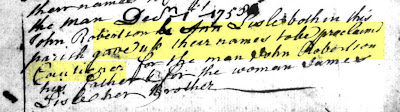 their names
the man Decr 1st 1753
John Robertson & Ann Lisle both in this
parish gave up their names to be proclaimd
Cautioner for the man John Robertson
his Father & for the woman James
Lisle her Brother